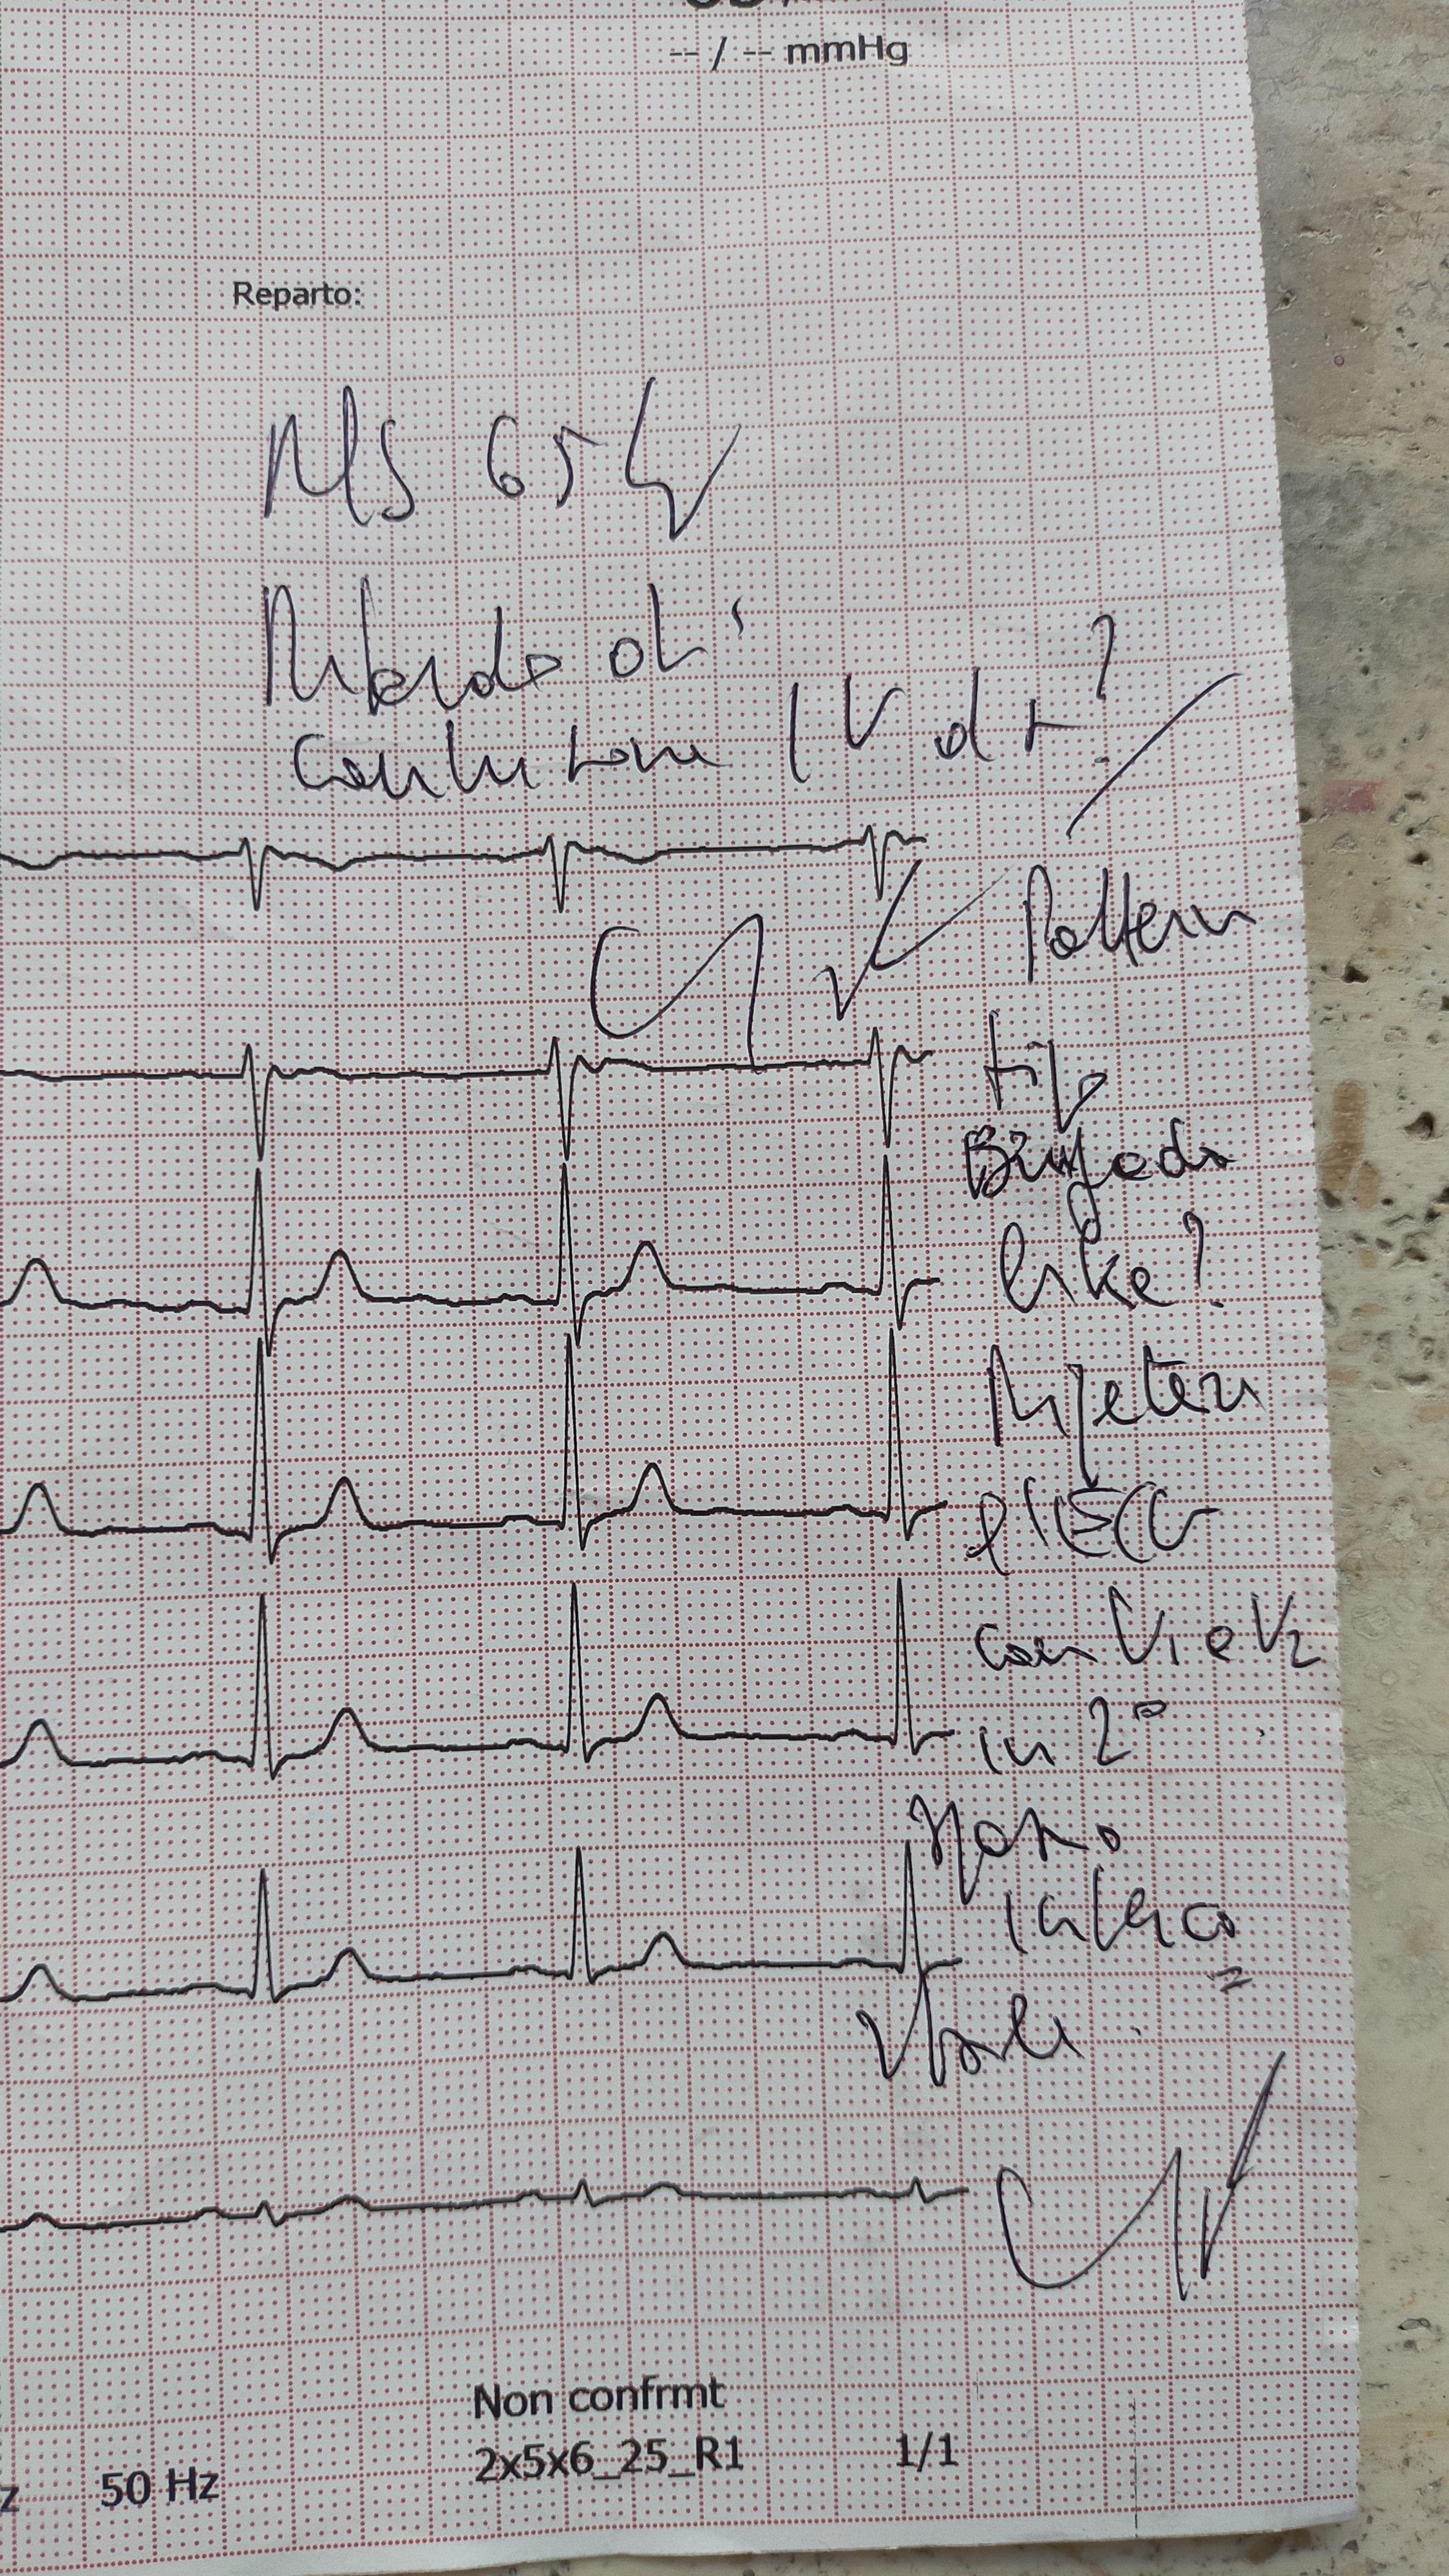 -- / -- mmHg
Reparto:
RS 65
Ritardo di
conduzione IV dx?
Pattern
tipo
Brugada
like?
Ripetere
ECG
con V1 e V2
in 2°
spazio
Non confrmt
2x5x6_25_R1
1/1
50 Hz